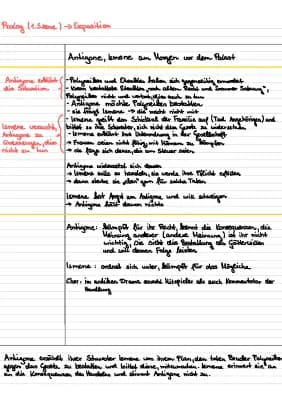 Prolog (1. Szene) → Exposition
Antigone, Ismene am Morgen vor dem Palast
Antigone erklärt
die Situation
- Polyneikes und Eteokles haben sich gegenseitig ermordet
- Kreon bestattete Eteokles „nach altem Recht und
Polyneikes nicht und
- Antigone möchte Polyneikes bestatten
- sie fragt Ismene → die macht nicht mit
Ismene versucht,
Antigone zu
überzeugen, dies
nicht zu tun
- Ismene greift den Schicksal der Familie auf (Tod Angehörigen) und
bittet so ihre Schwester, sich nicht dem Gesetz zu widersetzen
- Ismene erklärt ihre Unterordnung in der Gesellschaft
→ Frauen seien nicht fähig mit Männern zu kämpfen
→ sie füge sich denen, die am Steuer seien
Antigone widersetzt sich davon
→ Ismene solle so handeln, sie werde ihre Pflicht erfüllen
→ dann sterbe sie „dann gern für solche Taten
Ismene hat Angst um Antigone und will schweigen
→ Antigone
Antigone: kämpft für ihr Recht, kennt die Konsequenzen, die
Meinung anderer (andere Meinung) ist ihr nicht
wichtig, sie sieht die Bestattung als
und will denen Folge leisten
Ismene: ordnet sich unter, kämpft für das Mögliche
Chor: im antiken Drama sowohl Mitspieler als auch Kommentator der
Handlung
Antigone erzählt ihrer Schwester Ismene von ihrem Plan, den toten Bruder Polyneikes
gegen das Gesetz zu bestatten und bittet diese, mitzumachen. Ismene erinnert sie an
an die Konsequenzen des Handelns und stimmt Antigone nicht zu.